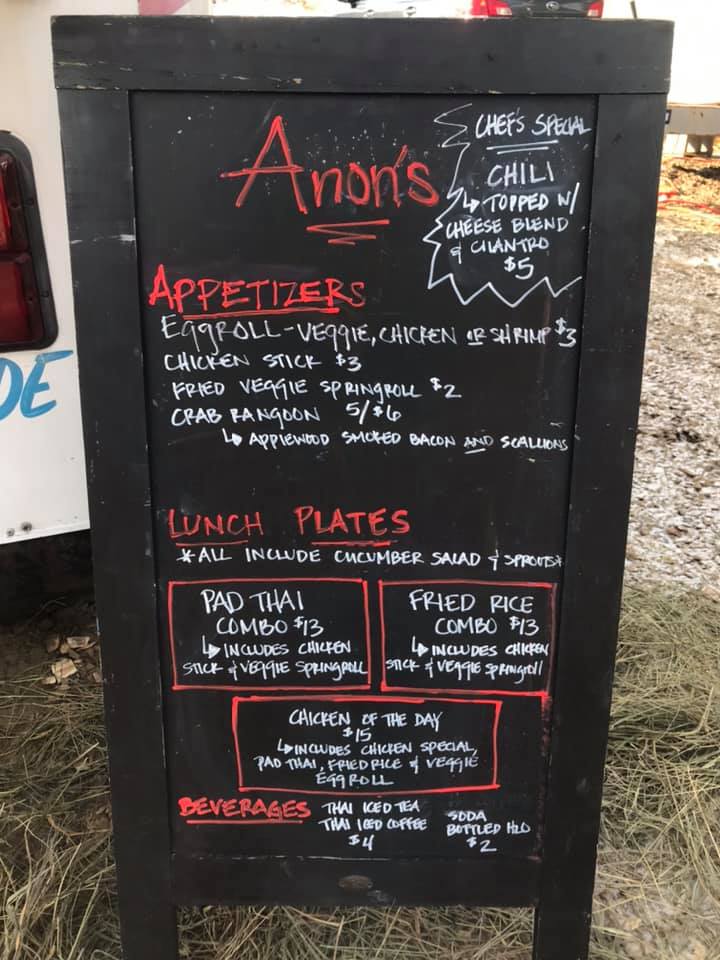 Anon's
CHEF'S SPECIAL
CHILI
↳ TOPPED W/
CHEESE BLEND
& CILANTRO
$5
APPETIZERS
EGGROLL - VEGGIE, CHICKEN OR SHRIMP $3
CHICKEN STICK $3
FRIED VEGGIE SPRINGROLL $2
CRAB RANGOON 5/$6
↳ APPLEWOOD SMOKED BACON AND SCALLIONS
LUNCH PLATES
*ALL INCLUDE CUCUMBER SALAD & SPROUTS*
PAD THAI
COMBO $13
↳ INCLUDES CHICKEN
STICK & VEGGIE SPRINGROLL
FRIED RICE
COMBO $13
↳ INCLUDES CHICKEN
STICK & VEGGIE SPRINGROLL
CHICKEN OF THE DAY
$15
↳ INCLUDES CHICKEN SPECIAL,
PAD THAI, FRIED RICE & VEGGIE
EGGROLL
BEVERAGES
THAI ICED TEA
THAI ICED COFFEE
$4
SODA
BOTTLED H2O
$2
DE